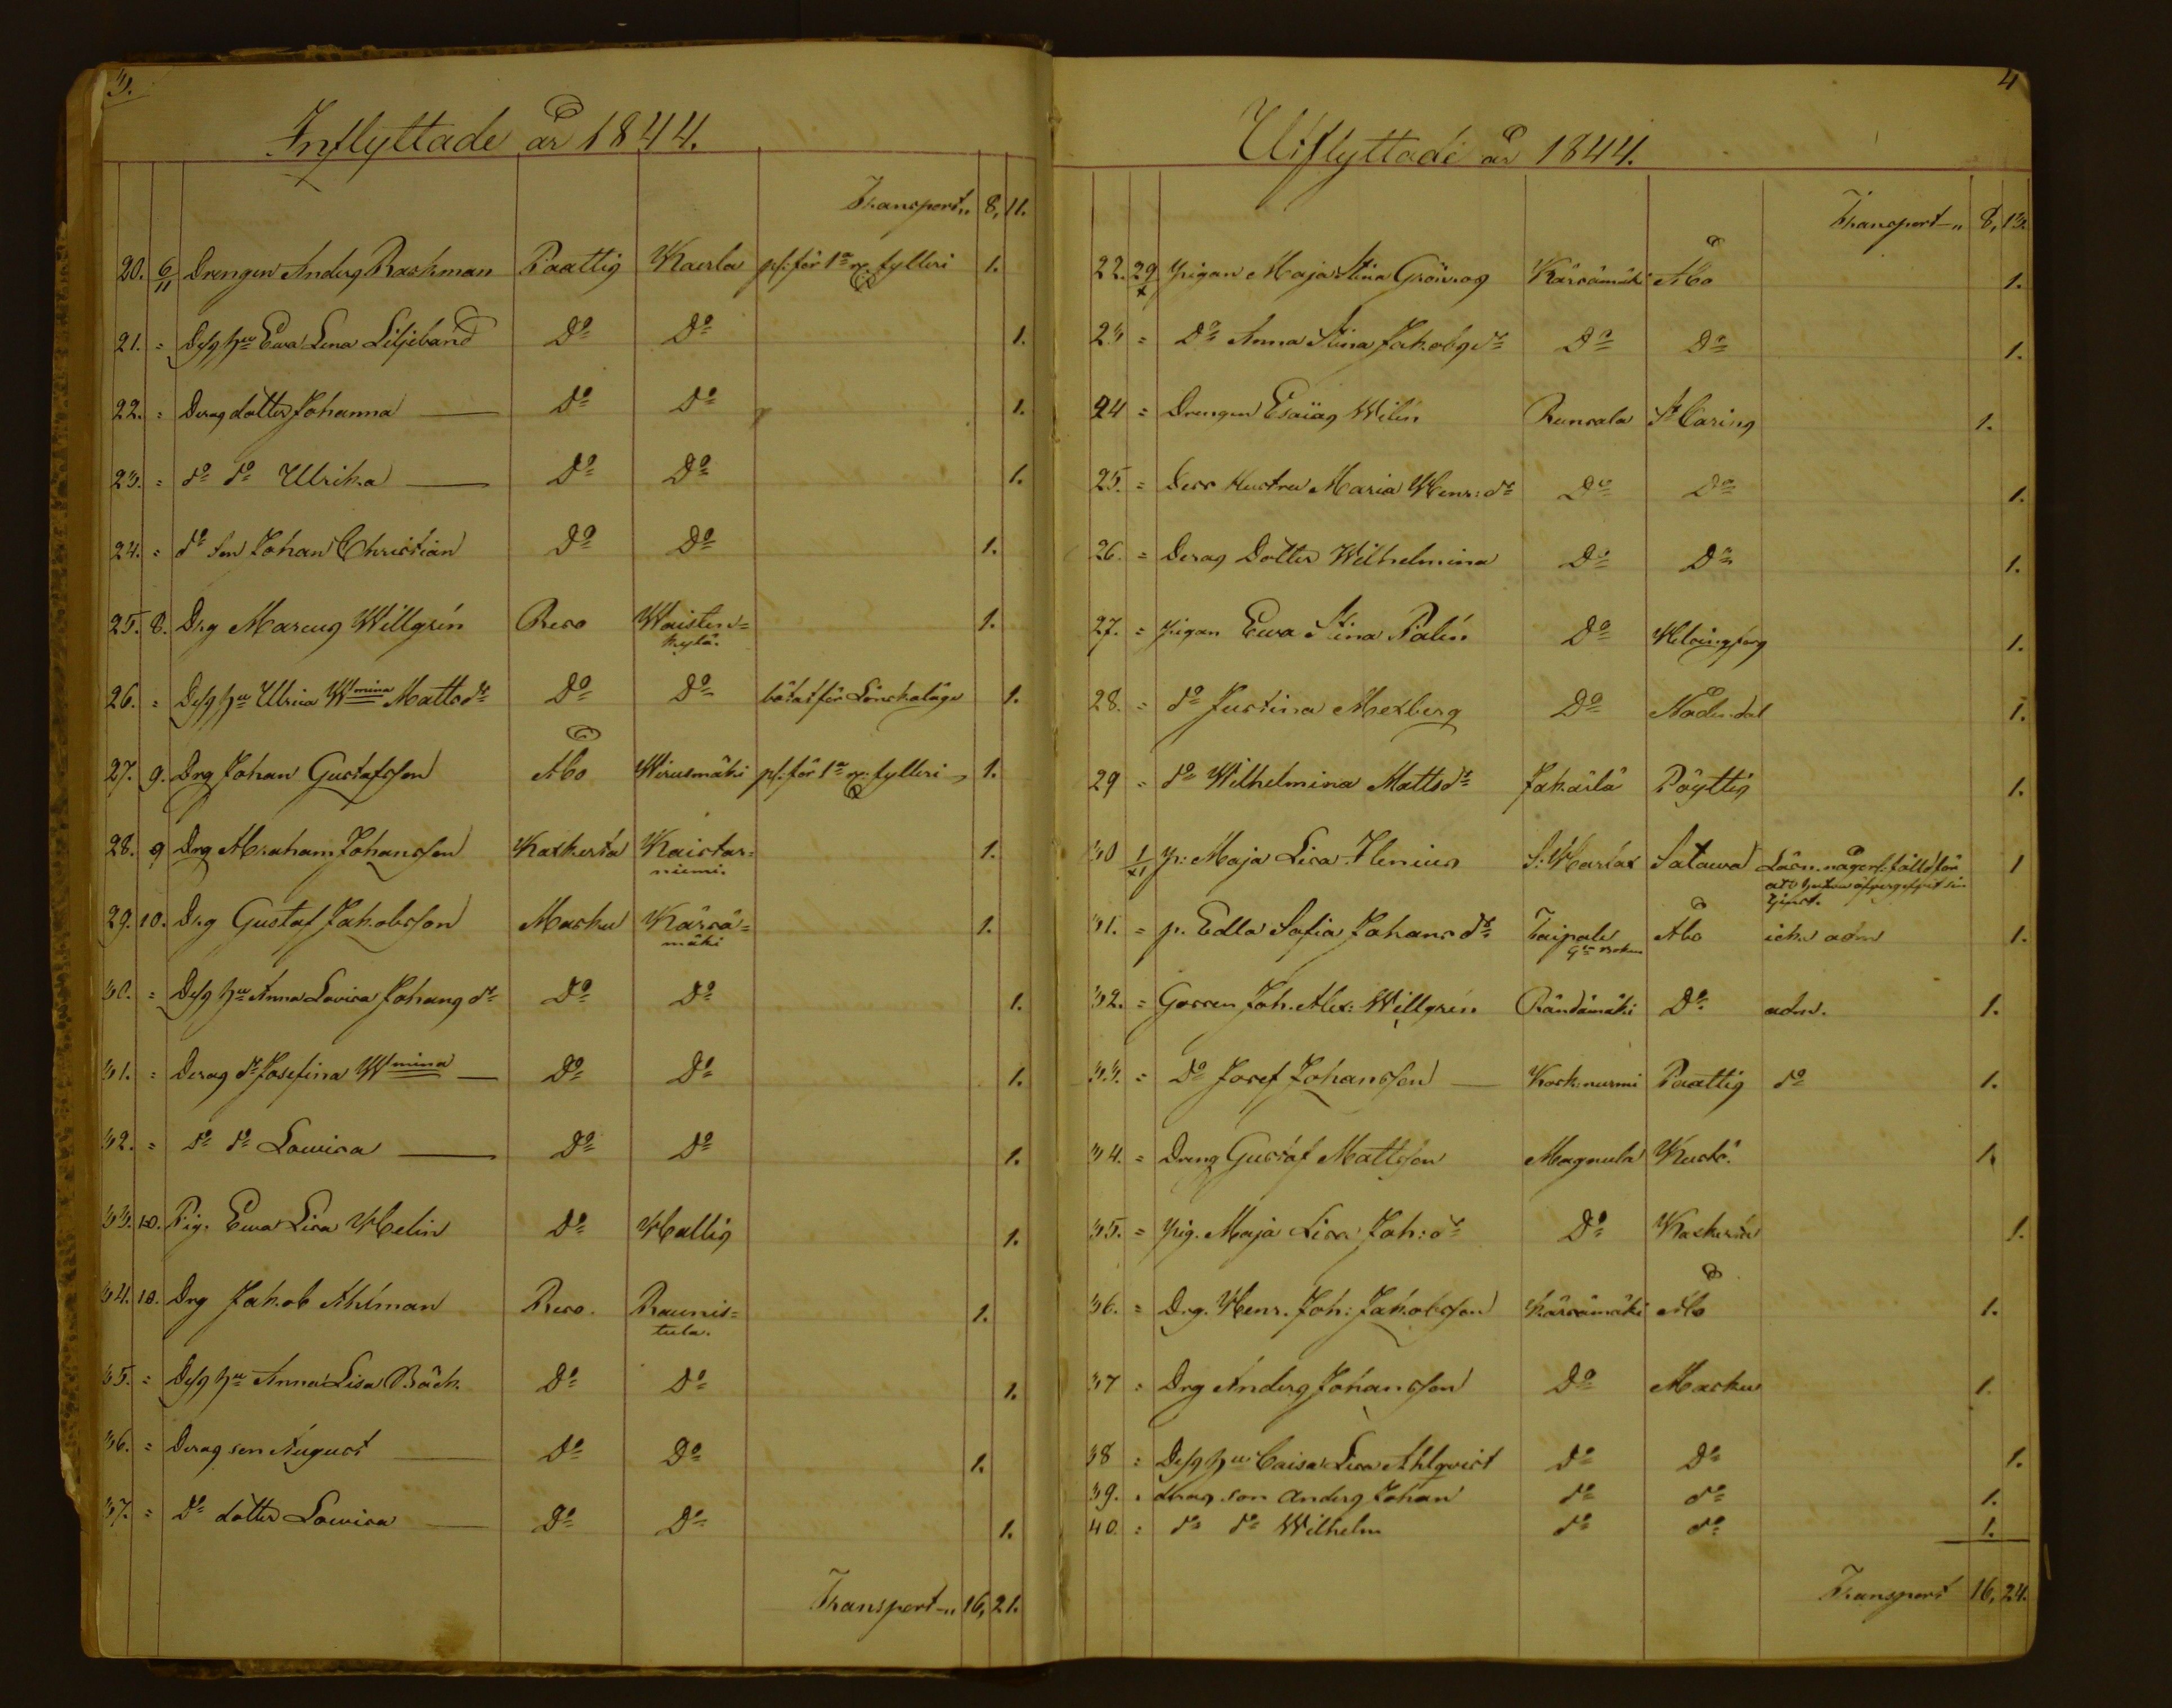 3.
Inflyttade år 1844.
Transport,, 8, 11.
20. 6/11 Drengen Anders Backman Paattis Kaerla pl: för 1a gg fylleri 1.
21. = Dess hu Ewa Lena Liljeband Do Do 1.
22. = Deras dotter Johanna — do do 1.
23. = do do Ulrika — Do Do 1.
24. = do son Johan Christian Do Do 1.
25. 8. Drg Marcus Willgrén Reso Waisten=
kylä. 1.
26. = Dess hu Ulrica Wmina Mattsdr Do Do bötat för Lönskaläge 1.
27. 9. Drg Johan Gustafsson Åbo Wirusmäki pl: för 1a gg: fylleri 1.
28. 9 Drg Abraham Johansson Kakskerta Kaistar=
niemi. 1.
29. 10. Drg Gustaf Jakobsson Masku Kärsä=
mäki 1.
30. = Dess hu Anna Lovisa Johans dr Do Do 1.
31. = Deras dr Josefina Wmina — Do Do 1.
32. = do do Lowisa — Do Do 1.
33. 10. Pig. Ewa Lisa Helin Do Hallis 1.
34. 10. Drg Jakob Ahlman Reso. Raunis=
tula. 1.
35. = Dess hu Anna Lisa Bäck. Do Do 1.
36. = Deras son August — Do Do 1.
37. = Do dotter Lowisa — Do Do 1.
Transport ,, 16, 21.
4
Utflyttade år 1844.
Transport ,, 8, 13.
22. 29/x pigan Maja Stina Grönros Kärsämäki Åbo 1.
23 = Do Anna Stina Jakobsdr Do Do 1.
24 = Drengen Esaias Wilén Runsala St Carins 1.
25. = Dess Hustru Maria Henr: dr Do Do 1.
26. = Deras Dotter Wilhelmina Do Do 1.
27. = pigan Ewa Stina Palén Do Helsingfors 1.
28. = do Justina Mexberg Do Nådendal 1.
29 = do Wilhelmina Mattsdr Jakärlä Pöyttis 1.
30 1/xi p: Maja Lisa Ilenius S: Marlax Satawa Läsn. någorl: fälld för
att hafva öfvergifvit sin
tjenst. 1
31. = p. Edla Sofia Johans dr Taipale Åbo ick. adm 1.
32. = Gossen Joh. Alex: Willgrén Räntämäki Do adm. 1.
33. = Do Josef Johansson — Koskinurmi Paattis do 1.
34. = Dreng Gustaf Mattsson Magnula Kustö. 1.
35. = pig. Maja Lisa Joh: dr Do Kakskerta 1.
36. = Drg. Henr. Joh: Jakobsson Kärsämäki Åbo 1.
37 = Drg Anders Johansson Do Masku 1.
38 = Dess hu Caisa Lisa Ahlqvist Do Do 1.
39. = deras son Anders Johan do do 1.
40. = do do Wilhelm do do 1.
Transport 16, 24.